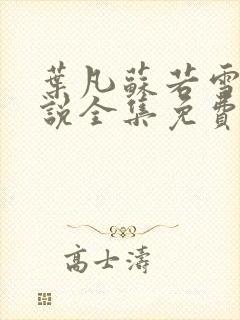 葉凡蘇若雪
說全集免費
高士濤